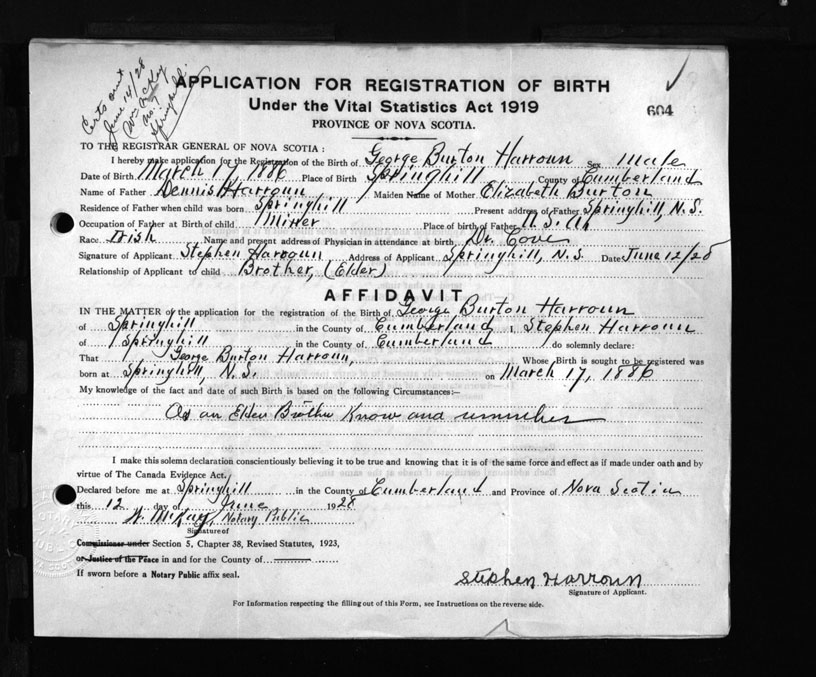 Certs out
June 14/28
Wm McKay
No. 1
Springhill
APPLICATION FOR REGISTRATION OF BIRTH
Under the Vital Statistics Act 1919
PROVINCE OF NOVA SCOTIA.
604
TO THE REGISTRAR GENERAL OF NOVA SCOTIA:
I hereby make application for the Registration of the Birth of George Burton Harroun Sex Male
Date of Birth March 17, 1886 Place of Birth Springhill County of Cumberland
Name of Father Dennis Harroun Maiden Name of Mother Elizabeth Burton
Residence of Father when child was born Springhill Present address of Father Springhill, N.S.
Occupation of Father at Birth of child Miner Place of birth of Father U.S.
Race Irish Name and present address of Physician in attendance at birth, Dr. Cove
Signature of Applicant Stephen Harroun Address of Applicant Springhill, N.S. Date June 12/28
Relationship of Applicant to child Brother, (Elder)
AFFIDAVIT
IN THE MATTER of the application for the registration of the Birth of George Burton Harroun
of Springhill in the County of Cumberland I, Stephen Harroun
of Springhill in the County of Cumberland do solemnly declare:
That George Burton Harroun, Whose Birth is sought to be registered was
born at Springhill, N.S. on March 17, 1886
My knowledge of the fact and date of such Birth is based on the following Circumstances:—
As an Elder Brother Know and remember
I make this solemn declaration conscientiously believing it to be true and knowing that it is of the same force and effect as if made under oath and by
virtue of The Canada Evidence Act.
Declared before me at Springhill in the County of Cumberland and Province of Nova Scotia
this 12 day of June 1928
McKay, Notary Public
Signature of
Commissioner under Section 5, Chapter 38, Revised Statutes, 1923,
or Justice of the Peace in and for the County of
If sworn before a Notary Public affix seal.
Stephen Harroun
Signature of Applicant.
For Information respecting the filling out of this Form, see Instructions on the reverse side.